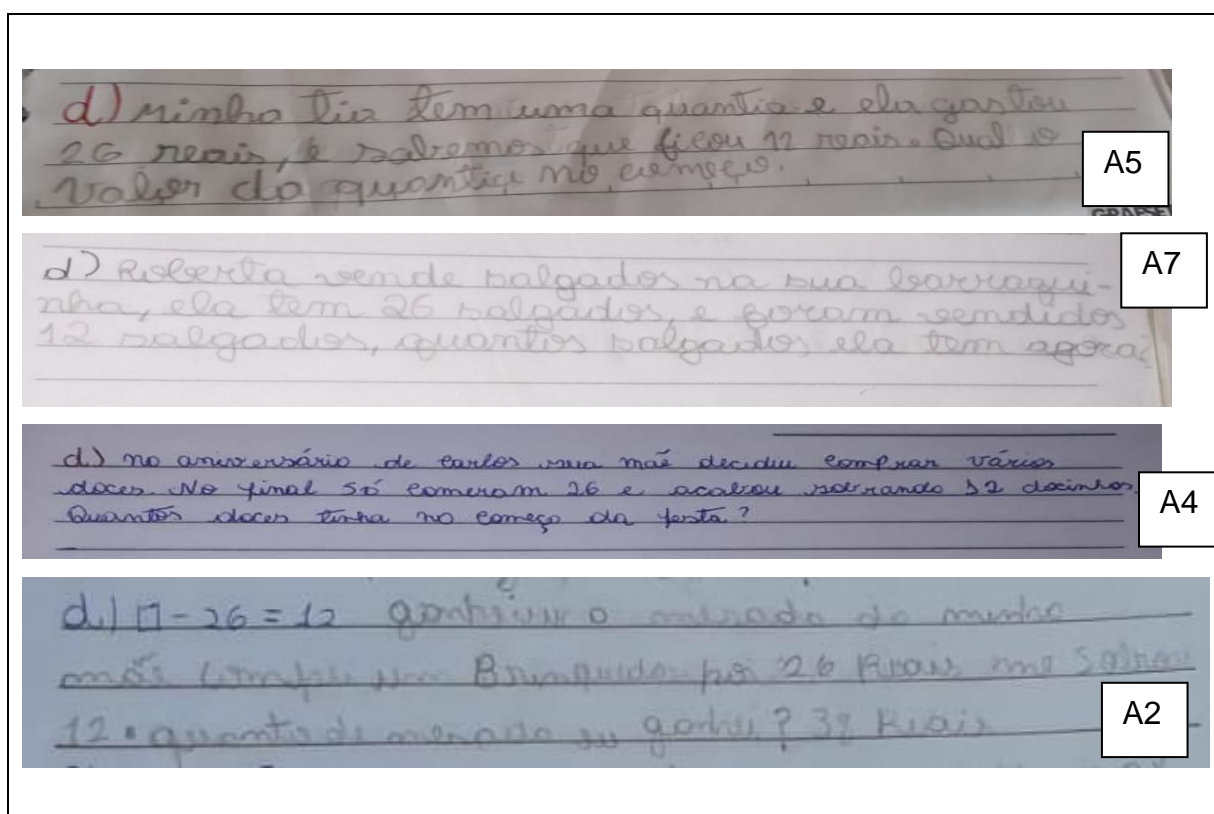 d) Minha tia tem uma quantia e ela gastou
26 reais, e sabemos que ficou 12 reais. Qual o
valor da quantia no começo.
A5
d) Roberta vende salgados na sua barraqui-
nha, ela tem 26 salgados, e foram vendidos
12 salgados, quantos salgados ela tem agora?
A7
d) no aniversário de carlos sua mãe decidiu comprar vários
doces. No final só comeram 26 e acabou sobrando 12 docinhos.
Quantos doces tinha no começo da festa?
A4
d) □ - 26 = 12 o da minha
mãe um Brinquedo por 26 Reais me
12. quanto de ganhei? 38 Reais
A2